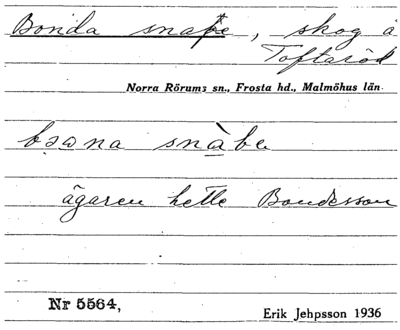 Bonda snape, skog å
Toftaröd
Norra Rörums sn., Frosta hd., Malmöhus län.
bωna snàbe
ägaren hette Bondesson
Nr 5564,
Erik Jehpsson 1936